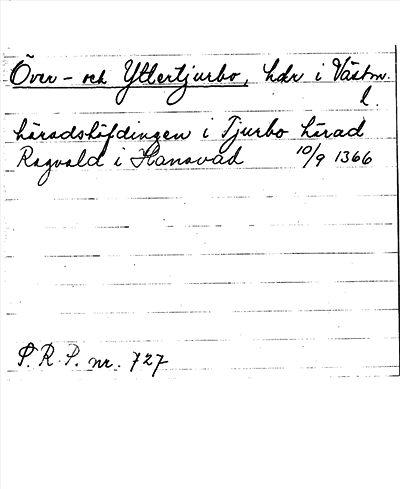 Över- och Yttertjurbo, hdr i Västm.
l.
häradshöfdingen i Tjurbo härad
Ragvald i Hanavad 10/9 1366
P.R.P. nr. 727